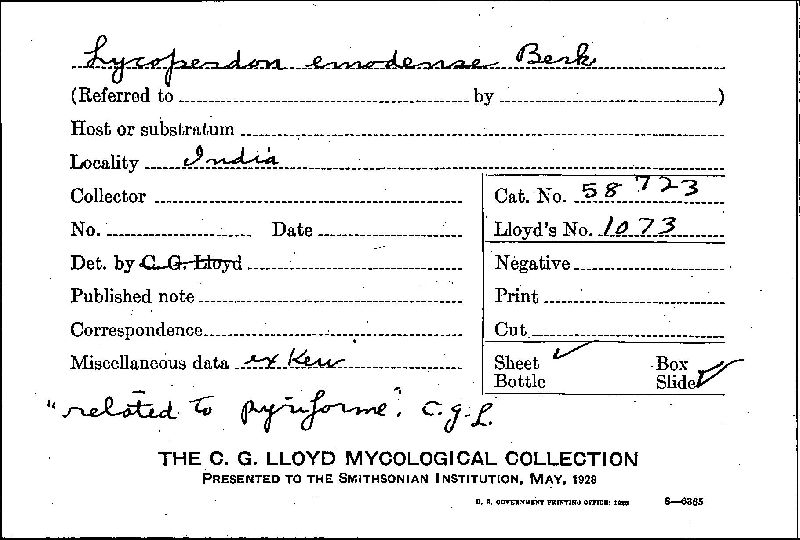 Lycoperdon emodense Berk
(Referred to by )
Host or substratum
Locality India
Collector
Cat. No. 58 723
No. Date
Lloyd's No. 1073
Det. by C. G. Lloyd
Negative
Published note
Print
Correspondence
Cut
Miscellaneous data ex Kew
Sheet ✓ Box
Bottle Slide ✓
"related to pyriforme". C.G.L.
THE C. G. LLOYD MYCOLOGICAL COLLECTION
PRESENTED TO THE SMITHSONIAN INSTITUTION, MAY, 1928
U. S. GOVERNMENT PRINTING OFFICE: 6—6365